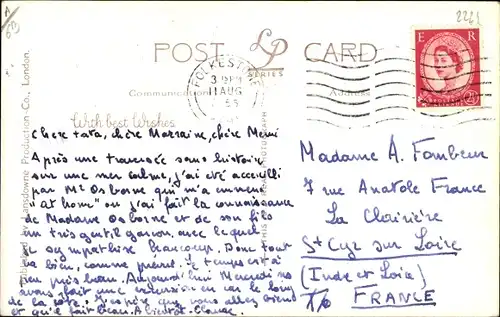 A
69
2261
POST CARD
LP
SERIES
E R
2½D
FOLKESTONE
3 PM
11 AUG
55
Communication
Address
With best Wishes
Published by Lansdowne Production Co., London.
THIS IS A PHOTOGRAPH
Chère tata, chère Marraine, chère Mémi
Après une traversée sans histoire
sur une mer calme, j'ai été accueilli
par Mr Osborne qui m'a emmené
"at home" ou j'ai fait la connaissance
de Madame Osborne et de son fils
un très gentil garçon, avec lequel
je sympathise beaucoup. Donc tout
va bien, comme prévu. Le temps est à
peu près beau. Aujourd'hui Mercredi nous
avons fait une excursion en car le long
de la côte. J'espère que vous allez bien
et qu'il fait beau. A bientôt.
Madame A. Fambeur
7 rue Anatole France
La Clairière
St Cyr sur Loire
(Indre et Loire)
FRANCE